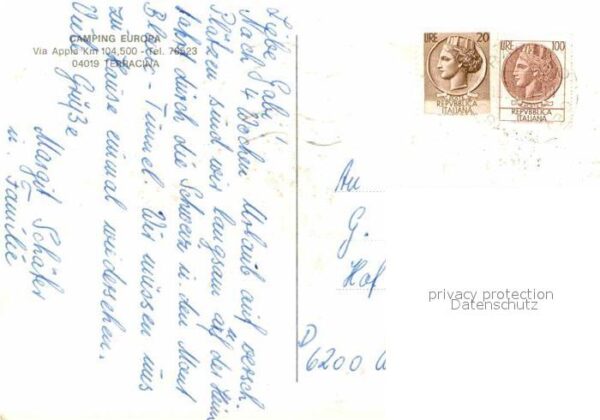 CAMPING EUROPA
Via Appia Km 104,500 - Tel. 78523
04019 TERRACINA
Liebe Gabi!
Nach 4 Wochen Urlaub auf versch.
Plätzen sind wir langsam auf der Heim
fahrt durch die Schweiz u. den Mont
Blanc-Tunnel. Wir müssen uns
zu Hause einmal wiedersehen.
Viele Grüße
Margit Schäfer
u. Familie
LIRE 20
REPVBBLICA
ITALIANA
LIRE 100
REPVBBLICA
ITALIANA
An
G.
Hof
D
6200 W
privacy protection
Datenschutz